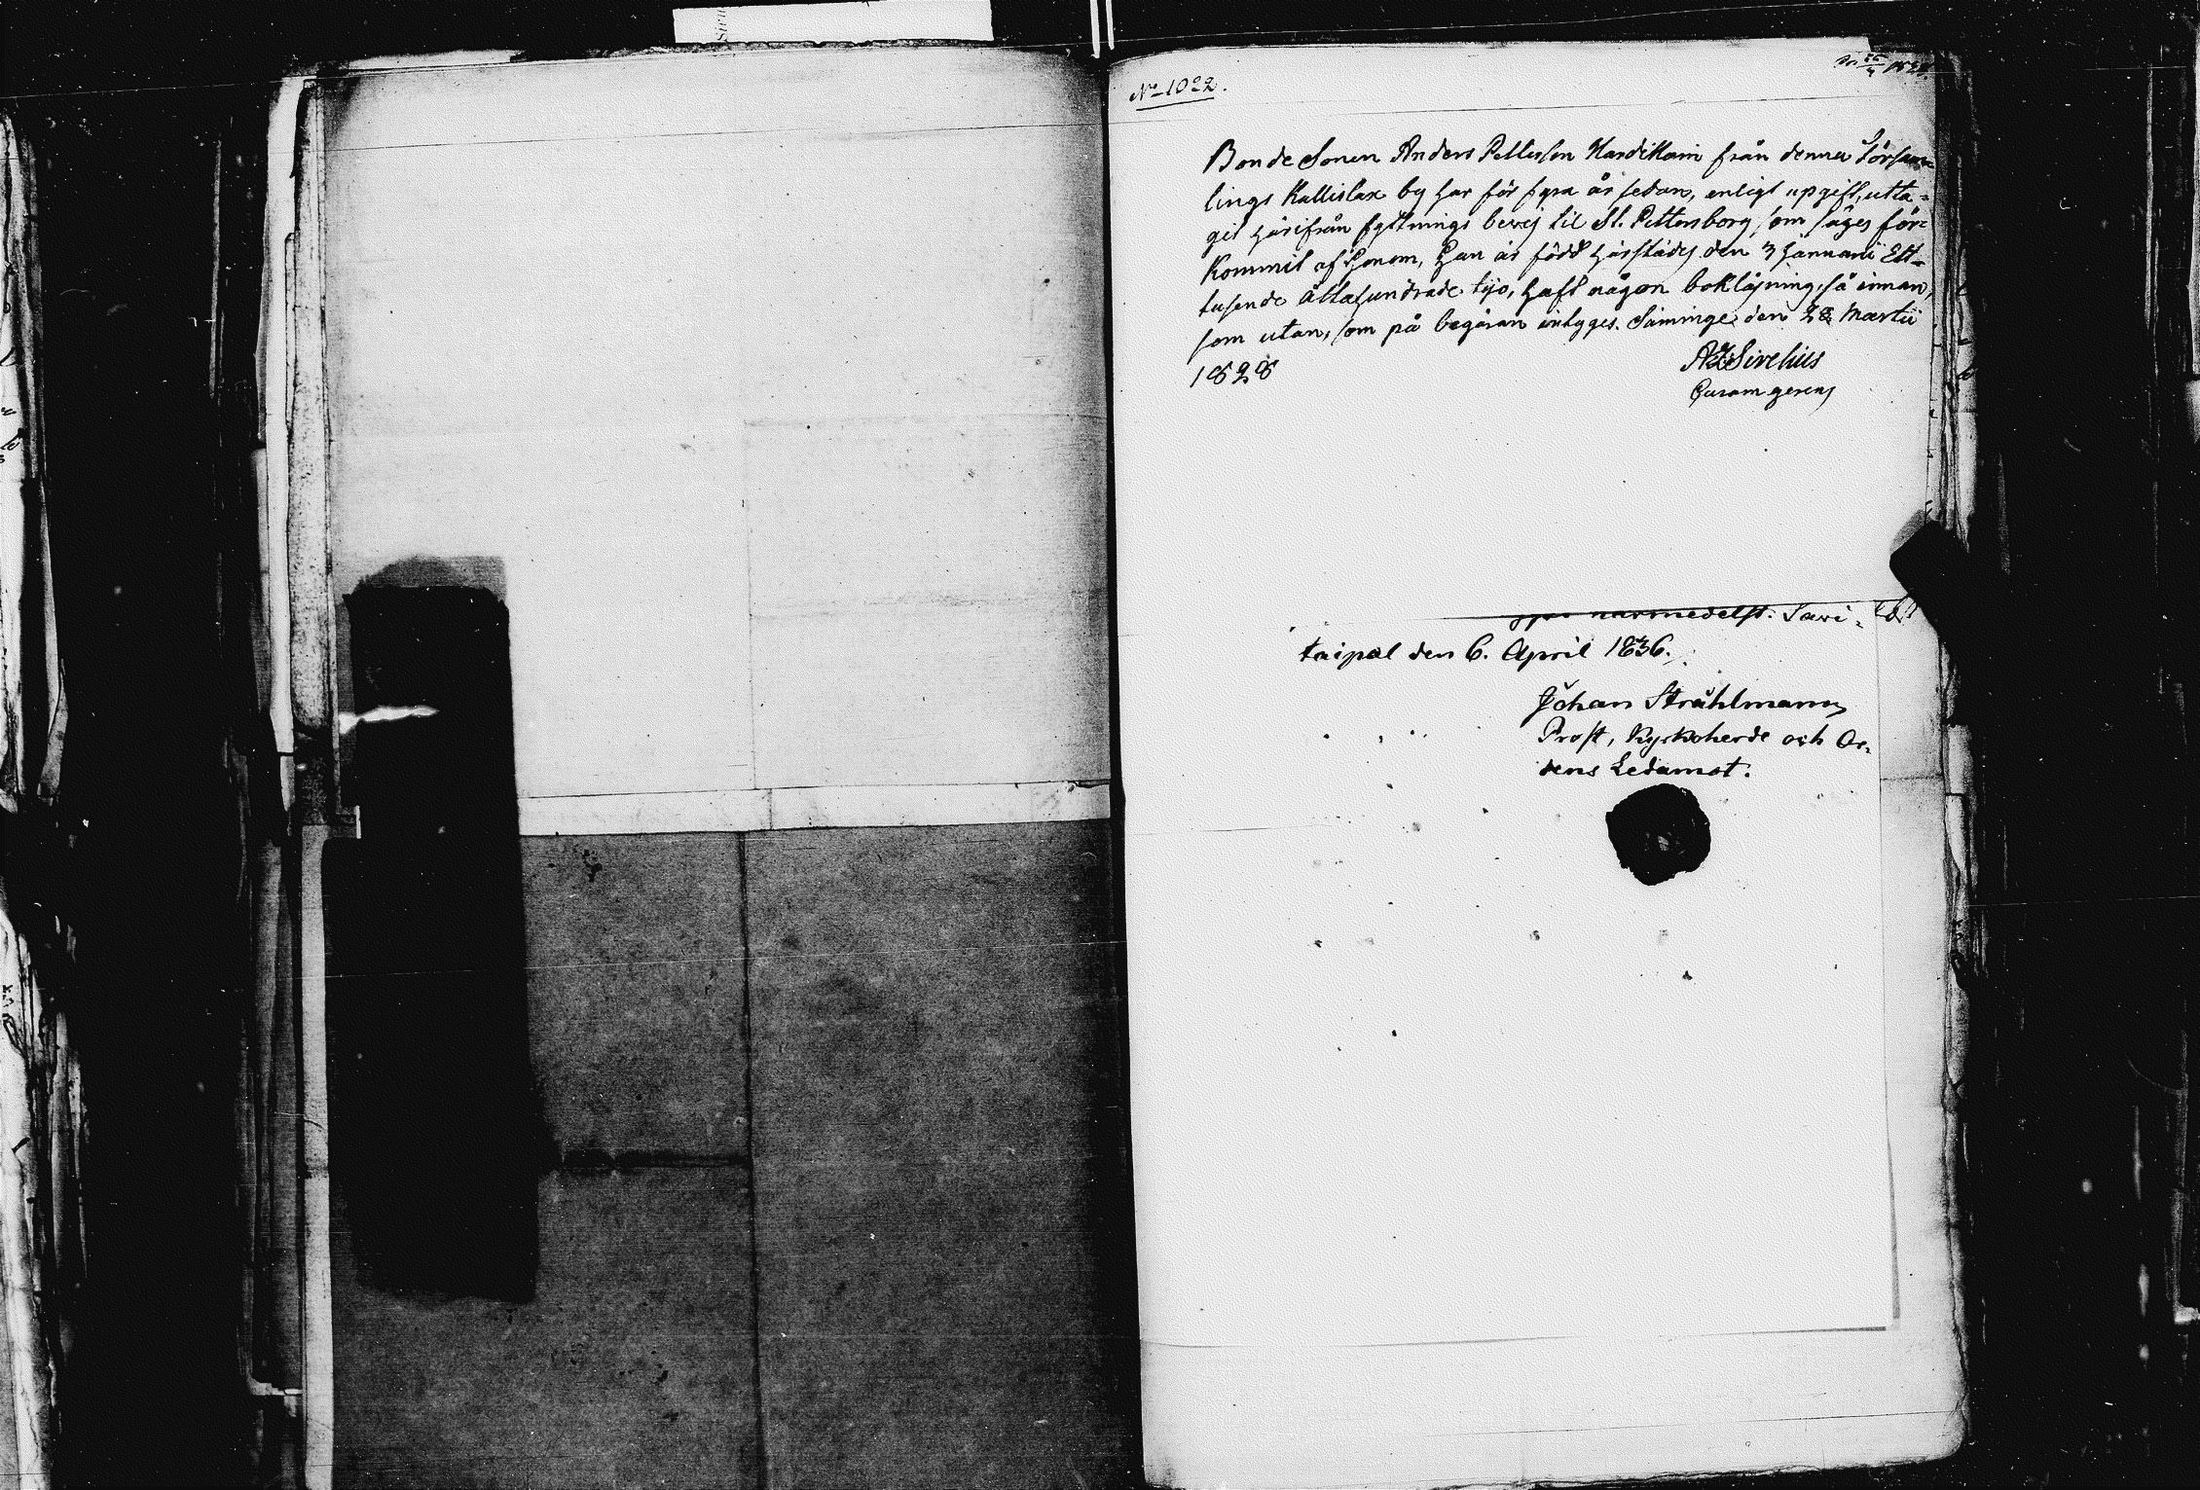 No 1022.
Bonde Sonen Anders Pettersson Hardikain från denna Församlings Kallislax by har för fyra år sedan, enligt upgift, utta-
git härifrån flyttnings bevis til St. Pettersborg, som säges för-
kommit af honom, han är född härstädes den 3 Januarii Ett-
tusende åttahundrade tijo, haft någon bokläsning, så innan,
som utan, som på begäran intyges. Säminge den 28 Martii
1828
Sirelius
Curam gerens
härmedelst. Sawi-
taipal den 6. April 1836.
Johan Stråhlmann
Prost, Kyrkoherde och Or-
dens Ledamot.